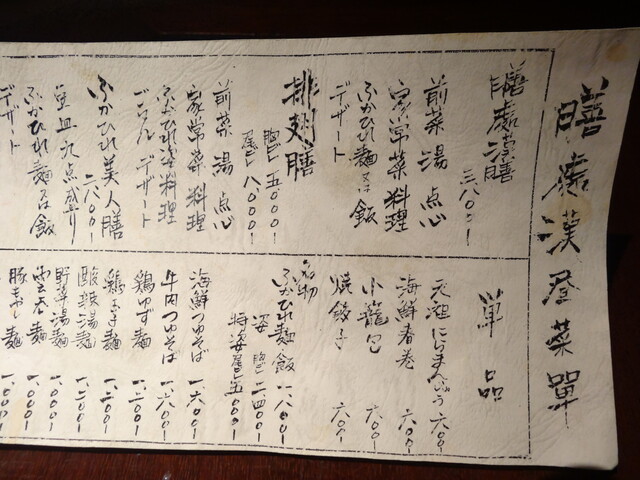 膳處漢登菜單
膳處漢膳
三八〇〇ー
前菜 湯 点心
家常菜料理
ふかひれ麺又は飯
デザート
排翅膳
胸ビレ 五〇〇〇ー
尾ビレ 八、〇〇〇ー
前菜 湯 点心
家常菜料理
ふかひれ料理
デザート
ふかひれ美人膳
二八〇〇ー
九点盛り
ふかひれ麺又は飯
デザート
単品
天湖にらまんじゅう 六〇〇ー
海鮮春巻 六〇〇ー
小籠包 六〇〇ー
焼餃子 六〇〇ー
名物
ふかひれ麺飯 一、八〇〇ー
姿 胸ビレ 二、四〇〇ー
特姿尾ビレ 五〇〇〇ー
海鮮つゆそば 一、六〇〇ー
牛肉つゆそば 一、六〇〇ー
鶏ゆず麺 一、二〇〇ー
鶏ねぎ麺 一、二〇〇ー
酸辣湯麺 一、二〇〇ー
野菜湯麺 一、〇〇〇ー
雲呑麺 一、〇〇〇ー
麺 一、〇〇〇ー